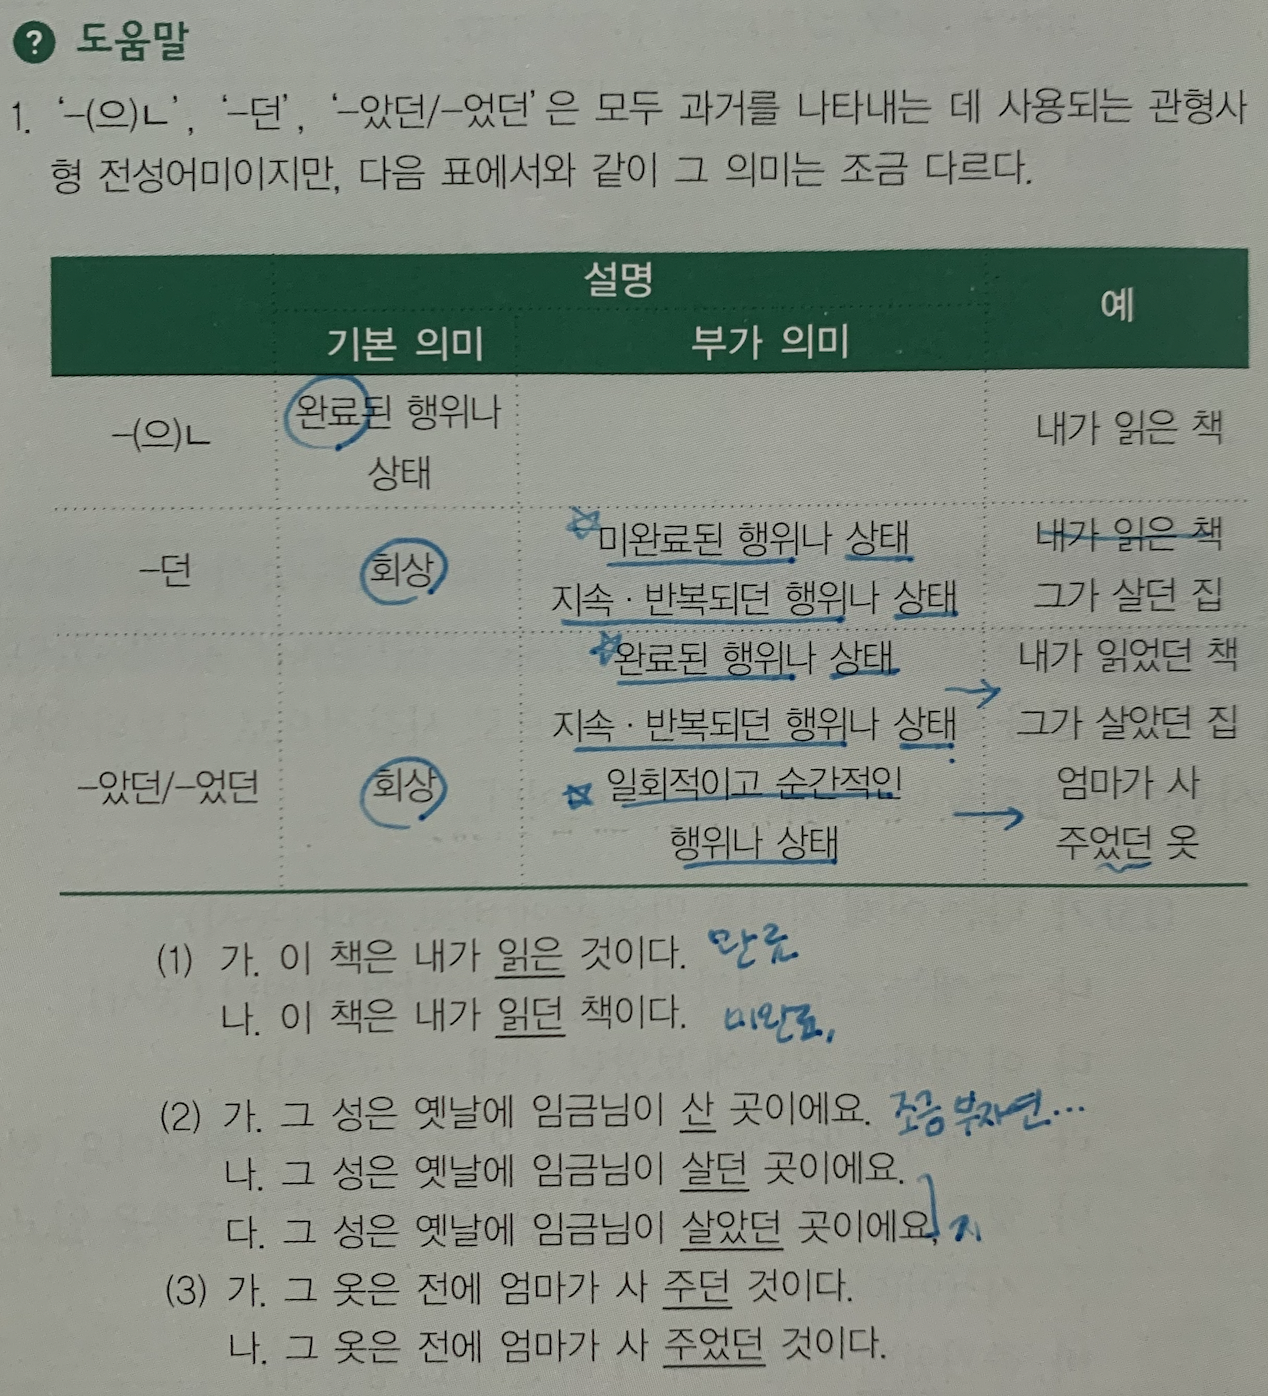 ? 도움말
1. ‘-(으)ㄴ’, ‘-던’, ‘-았던/-었던’은 모두 과거를 나타내는 데 사용되는 관형사
형 전성어미이지만, 다음 표에서와 같이 그 의미는 조금 다르다.
설명
예
기본 의미 부가 의미
-(으)ㄴ 완료된 행위나 상태 내가 읽은 책
-던 회상 미완료된 행위나 상태 내가 읽은 책
지속·반복되던 행위나 상태 그가 살던 집
-았던/-었던 회상 완료된 행위나 상태 내가 읽었던 책
지속·반복되던 행위나 상태 그가 살았던 집
일회적이고 순간적인 엄마가 사
행위나 상태 주었던 옷
(1) 가. 이 책은 내가 읽은 것이다. 완료
나. 이 책은 내가 읽던 책이다. 미완료,
(2) 가. 그 성은 옛날에 임금님이 산 곳이에요. 조금 부자연...
나. 그 성은 옛날에 임금님이 살던 곳이에요.
다. 그 성은 옛날에 임금님이 살았던 곳이에요. 지
(3) 가. 그 옷은 전에 엄마가 사 주던 것이다.
나. 그 옷은 전에 엄마가 사 주었던 것이다.